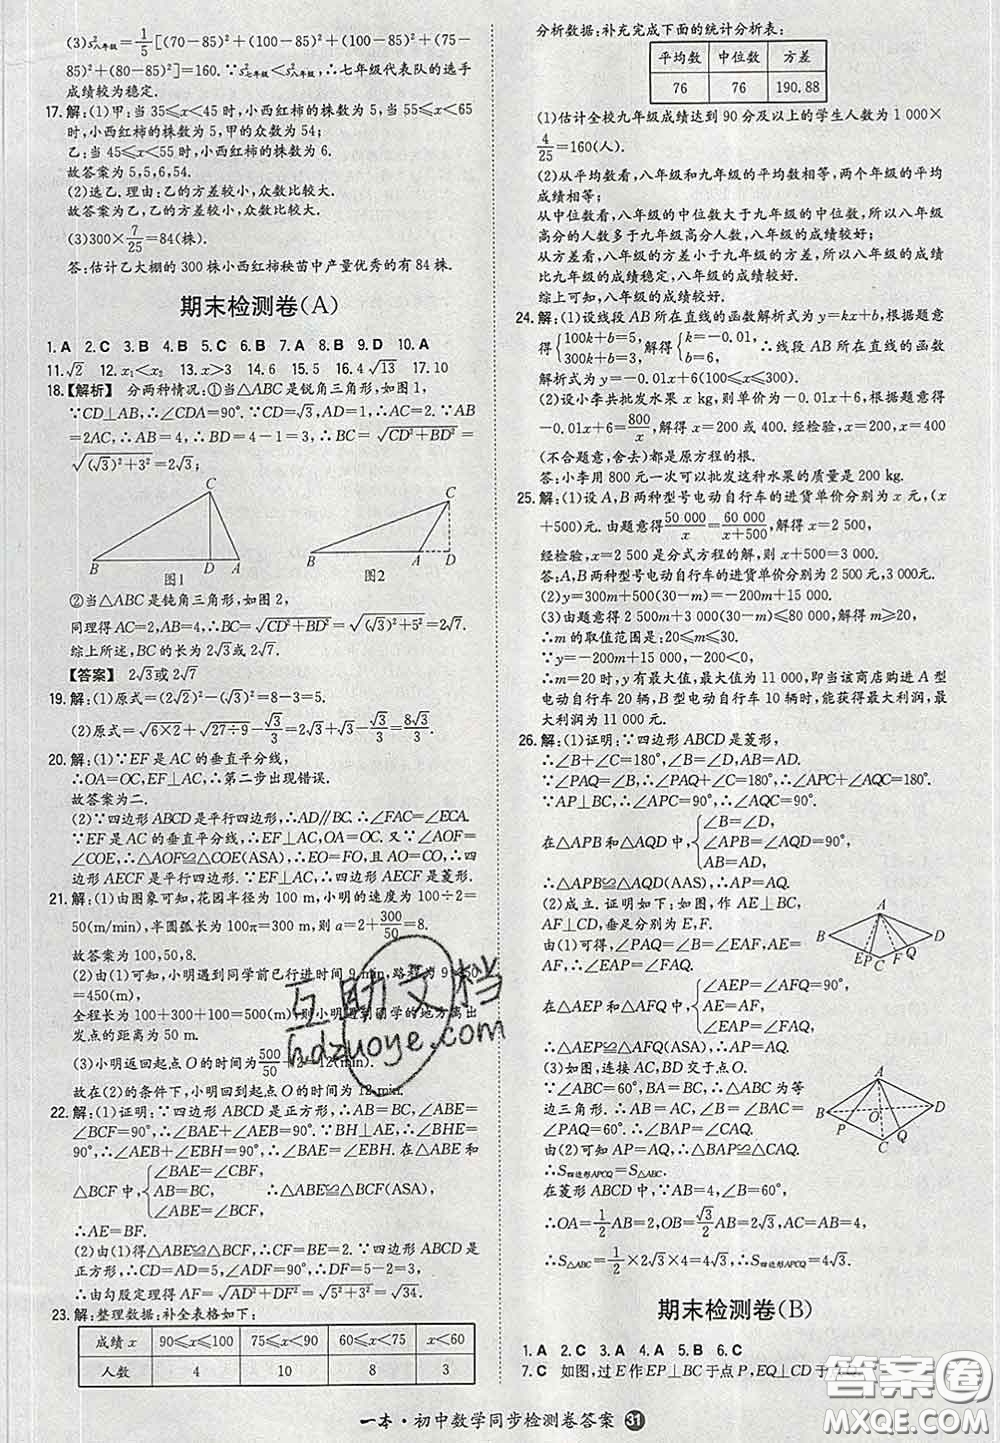 (3)s²八年级=1/5[(70-85)²+(100-85)²+(100-85)²+(75-
85)²+(80-85)²]=160.∵s²七年级<s²八年级,∴七年级代表队的选手
成绩较为稳定.
17.解:(1)甲:当35≤x<45时,小西红柿的株数为5,当55≤x<65
时,小西红柿的株数为5,甲的众数为54;
乙:当45≤x<55时,小西红柿的株数为6.
故答案为5,5,6,54.
(2)选乙.理由:乙的方差较小,众数比较大.
故答案为乙,乙的方差较小,众数比较大.
(3)300×7/25=84(株).
答:估计乙大棚的300株小西红柿秧苗中产量优秀的有84株.
期末检测卷(A)
1.A 2.C 3.B 4.B 5.C 6.B 7.A 8.B 9.D 10.A
11.√2 12.x₁<x₂ 13.x>3 14.6 15.5 16.4√13 17.10
18.【解析】 分两种情况:①当△ABC是锐角三角形,如图1,
∵CD⊥AB,∴∠CDA=90°.∵CD=√3,AD=1,∴AC=2.∵AB
=2AC,∴AB=4,∴BD=4-1=3,∴BC=√(CD²+BD²)=
√((√3)²+3²)=2√3;
C B D A 图1
C B A D 图2
②当△ABC是钝角三角形,如图2,
同理得AC=2,AB=4,∴BC=√(CD²+BD²)=√((√3)²+5²)=2√7.
综上所述,BC的长为2√3或2√7.
【答案】 2√3或2√7
19.解:(1)原式=(2√2)²-(√3)²=8-3=5.
(2)原式=√(6×2)+√(27÷9)-√3/3=2√3+√3-√3/3=8√3/3.
20.解:(1)∵EF是AC的垂直平分线,
∴OA=OC,EF⊥AC,∴第二步出现错误.
故答案为二.
(2)∵四边形ABCD是平行四边形,∴AD∥BC.∴∠FAC=∠ECA.
∵EF是AC的垂直平分线,∴EF⊥AC,OA=OC.又∵∠AOF=
∠COE,∴△AOF≌△COE(ASA),∴EO=FO,且AO=CO,∴四
边形AECF是平行四边形.∵EF⊥AC,∴四边形AECF是菱形.
21.解:(1)由图象可知,花园半径为100 m,小明的速度为100÷2=
50(m/min),半圆弧长为100π=300 m,则a=2+300/50=8.
故答案为100,50,8.
(2)由(1)可知,小明遇到同学前已行进时间9 min,路程为9×50
=450(m),
全程长为100+300+100=500(m),则小明遇到同学的地方离出
发点的距离为50 m.
(3)小明返回起点O的时间为500/50+2=12(min).
故在(2)的条件下,小明回到起点O的时间为12 min.
22.解:(1)证明:∵四边形ABCD是正方形,∴AB=BC,∠ABE=
∠BCF=90°,∴∠BAE+∠AEB=90°.∵BH⊥AE,∴∠BHE=
90°,∴∠AEB+∠EBH=90°.∴∠BAE=∠EBH.在△ABE和
△BCF中,{∠BAE=∠CBF, AB=BC, ∠ABE=∠BCF,∴△ABE≌△BCF(ASA),
∴AE=BF.
(2)由(1)得△ABE≌△BCF,∴CF=BE=2.∵四边形ABCD是
正方形,∴CD=AD=5,∠ADF=90°,∴DF=5-2=3,
∴由勾股定理得AF=√(AD²+DF²)=√(5²+3²)=√34.
23.解:整理数据:补全表格如下:
成绩x 90≤x≤100 75≤x<90 60≤x<75 x<60
人数 4 10 8 3
分析数据:补充完成下面的统计分析表:
平均数 中位数 方差
76 76 190.88
(1)估计全校九年级成绩达到90分及以上的学生人数为1 000×
4/25=160(人).
(2)从平均数看,八年级和九年级的平均数相等,两个年级的平均
成绩相等;
从中位数看,八年级的中位数大于九年级的中位数,所以八年级
高分的人数多于九年级高分人数,八年级的成绩较好;
从方差看,八年级的方差小于九年级的方差,所以八年级的成绩
比九年级的成绩稳定,八年级的成绩较好.
综上可知,八年级的成绩较好.
24.解:(1)设线段AB所在直线的函数解析式为y=kx+b,根据题意
得{100k+b=5, 300k+b=3,解得{k=-0.01, b=6,∴线段AB所在直线的函数
解析式为y=-0.01x+6(100≤x≤300).
(2)设小李共批发水果x kg,则单价为-0.01x+6,根据题意得
-0.01x+6=800/x,解得x=200或400.经检验,x=200,x=400
(不合题意,舍去)都是原方程的根.
答:小李用800元一次可以批发这种水果的质量是200 kg.
25.解:(1)设A,B两种型号电动自行车的进货单价分别为x元,(x
+500)元.由题意得50 000/x=60 000/(x+500),解得x=2 500,
经检验,x=2 500是分式方程的解,可知x+500=3 000.
答:A,B两种型号电动自行车的进货单价分别为2 500元,3 000元.
(2)y=300m+500(30-m)=-200m+15 000.
(3)由题意得2 500m+3 000(30-m)≤80 000,解得m≥20,
∴m的取值范围是:20≤m≤30.
∵y=-200m+15 000,-200<0.
∴m=20时,y有最大值,最大值为11 000,即当该商店购进A型
电动自行车20辆,B型电动自行车10辆时,能获得最大利润,最
大利润为11 000元.
26.解:(1)证明:∵四边形ABCD是菱形,
∴∠B+∠C=180°,∠B=∠D,AB=AD.
∵∠PAQ=∠B,∴∠PAQ+∠C=180°,∴∠APC+∠AQC=180°.
∵AP⊥BC,∴∠APC=90°,∴∠AQC=90°.
在△APB和△AQD中,{∠B=∠D, ∠APB=∠AQD, AB=AD,
∴△APB≌△AQD(AAS),∴AP=AQ.
(2)成立.证明如下:如图,作AE⊥BC,
AF⊥CD,垂足分别为E,F.
由(1)可得,∠PAQ=∠EAF,AE=
AF,∴∠EAP=∠FAQ.
A B D E P C F Q
在△AEP和△AFQ中,{∠AEP=∠AFQ=90°, AE=AF, ∠EAP=∠FAQ,
∴△AEP≌△AFQ(ASA),∴AP=AQ.
(3)如图,连接AC,BD交于点O.
∵∠ABC=60°,BA=BC,∴△ABC为等
边三角形.∵
∠PAQ=60°,∴∠BAP=∠CAQ.
由(2)可知AP=AQ,∴△BAP≌△CAQ.
∴S四边形APCQ=S△ABC.
在菱形ABCD中,∵AB=4,∠B=60°,
∴OA=1/2AB=2,OB=√3/2AB=2√3,AC=AB=4,
∴S△ABC=1/2×2√3×4=4√3,∴S四边形APCQ=4√3.
A B D P O C Q
期末检测卷(B)
1.A 2.C 3.A 4.A 5.B 6.C
7.C 如图,过E作EP⊥BC于点P,EQ⊥CD于
一本·初中数学同步检测卷答案 31
互助文档
hdzuoye.com
答案圈
MXQE.COM